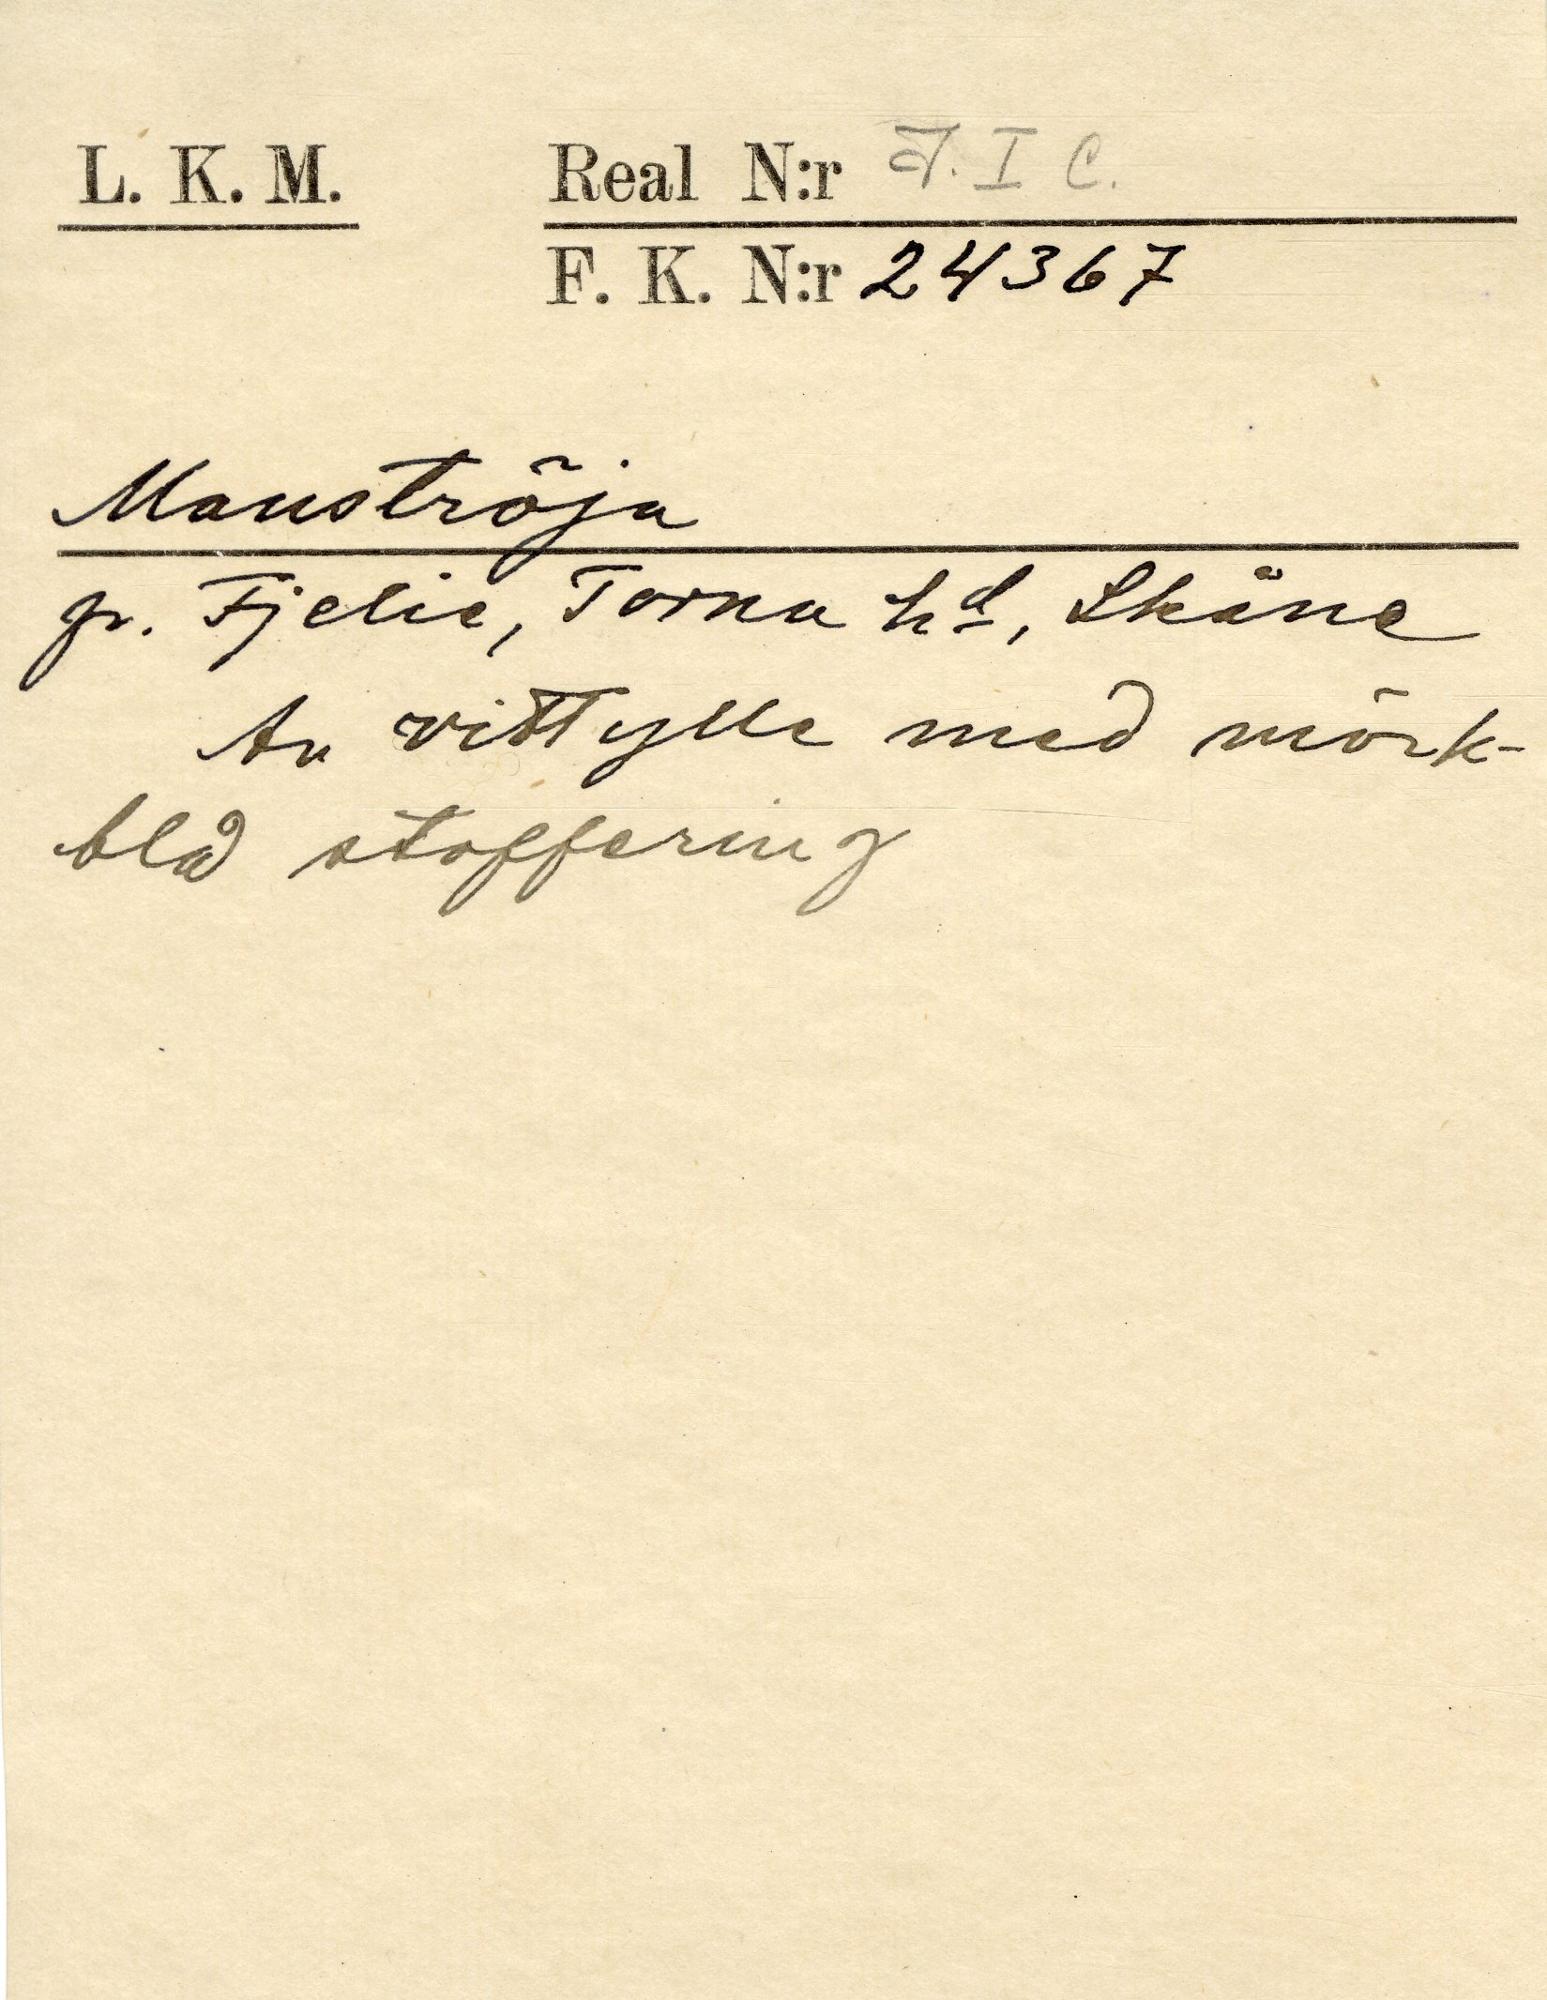 L. K. M. Real N:r F. I C.
F. K. N:r 24367
Manströja
fr. Fjelie, Torna hd, Skåne
Av vitt ylle med mörk-
blå stoffering